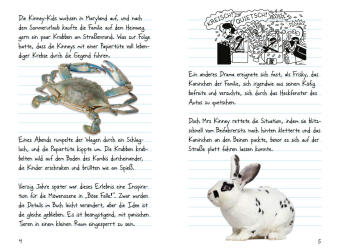 Die Kinney-Kids wuchsen in Maryland auf, und nach
dem Sommerurlaub kaufte die Familie auf dem Heimweg
gern ein paar Krabben am Straßenrand. Was zur Folge
hatte, dass die Kinneys mit einer Papiertüte voll leben-
diger Krebse durch die Gegend fuhren.
Eines Abends rumpelte der Wagen durch ein Schlag-
loch, und die Papiertüte kippte um. Die Krabben krab-
belten wild auf dem Boden des Kombis durcheinander,
die Kinder erschraken und brüllten wie am Spieß.
Vierzig Jahre später war dieses Erlebnis eine Inspira-
tion für die Möwenszene in „Böse Falle!“. Zwar wurden
die Details im Buch leicht verändert, aber die Idee ist
die gleiche geblieben. Es ist beängstigend, mit panischen
Tieren in einem kleinen Raum eingesperrt zu sein.
4
KREISCH
QUIETSCH
Ein anderes Drama ereignete sich fast, als Frisky, das
Kaninchen der Familie, sich irgendwie aus seinem Käfig
befreite und versuchte, sich durch das Heckfenster des
Autos zu quetschen.
Doch Mrs Kinney rettete die Situation, indem sie blitz-
schnell vom Beifahrersitz nach hinten kletterte und das
Kaninchen an den Beinen packte, bevor es sich auf der
Straße platt fahren lassen konnte.
5